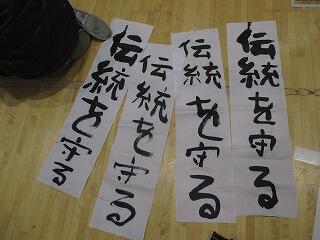 伝統を守る
伝統を守る
伝統を守る
伝統を守る